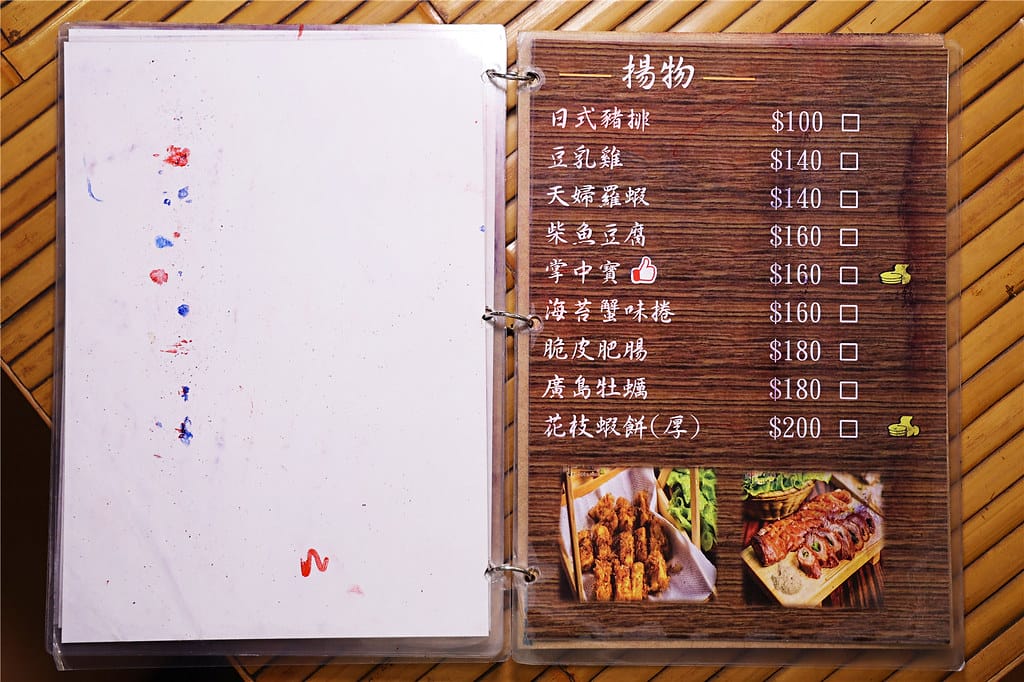 揚物
日式豬排 $100 □
豆乳雞 $140 □
天婦羅蝦 $140 □
柴魚豆腐 $160 □
掌中寶 $160 □
海苔蟹味捲 $160 □
脆皮肥腸 $180 □
廣島牡蠣 $180 □
花枝蝦餅(厚) $200 □